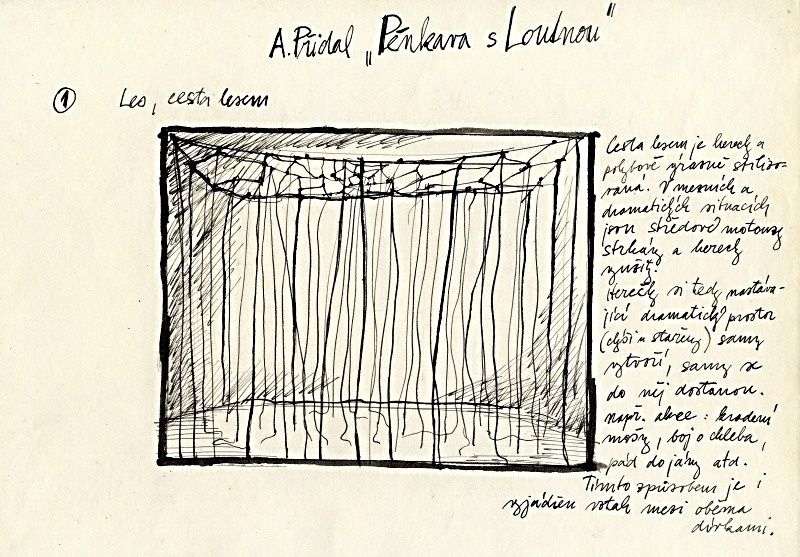 A. Přidal „Pěnkava s Loutnou"
1 Les, cesta lesem
Cesta lesem je herecky a
pohybově výrazně stylizo-
vána. V mezních a
dramatických situacích
jsou středové motouzy
strhány a herecky
využity.
Herečky si tedy nastáva-
jící dramatický prostor
samy
vytvoří, samy se
do něj dostanou.
např. akce: kradení
mošny, boj o chleba,
pád do jámy atd.
Tímto způsobem je i
vyjádřen vztah mezi oběma
dívkami.